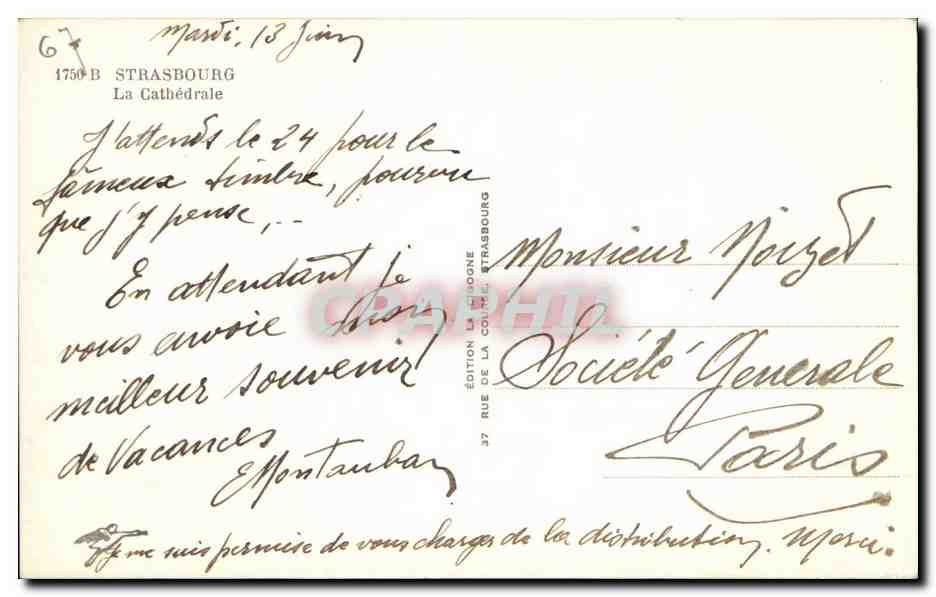 67
Mardi, 13 Juin
1750 B STRASBOURG
La Cathédrale
J'attends le 24 pour le
fameux timbre, pourvu
que j'y pense,...
En attendant je
vous envoie mon
meilleur souvenir
de Vacances
EMontauban
ÉDITION LA CIGOGNE
37 RUE DE LA COURSE, STRASBOURG
CRAPHIL
Monsieur Noizet
Société Generale
Paris
Je me suis permise de vous charger de la distribution. Merci.